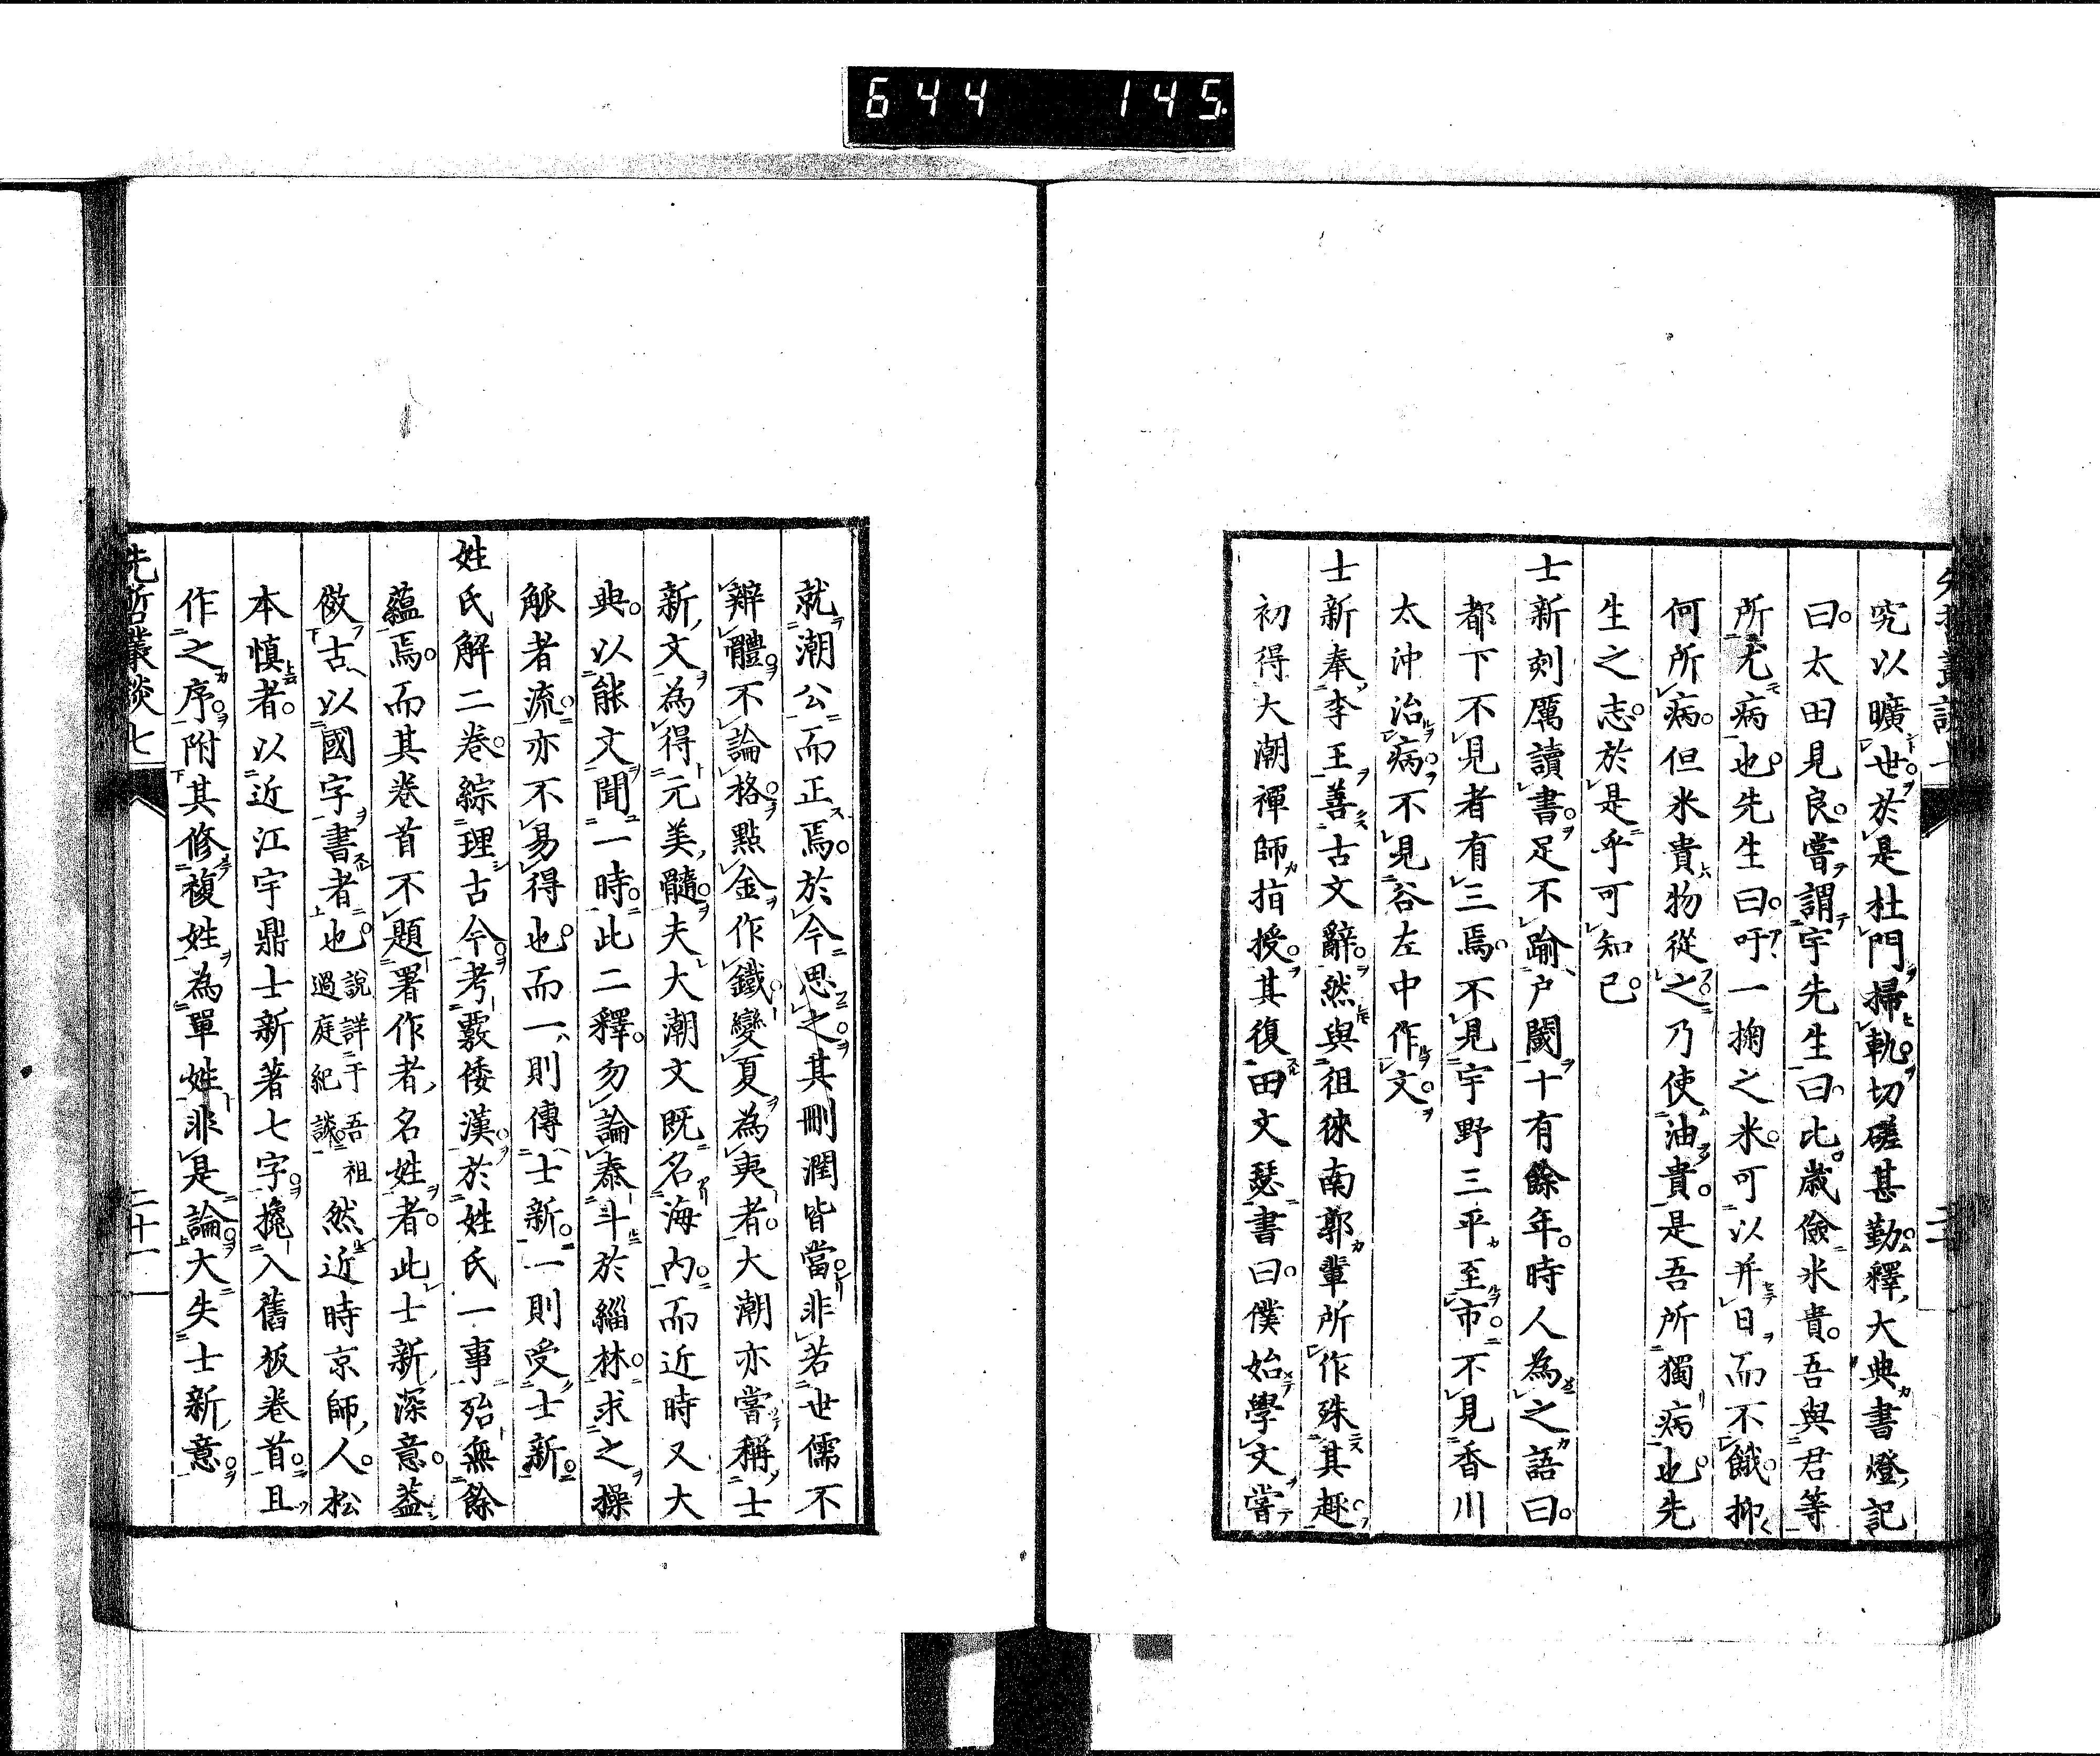 644 145
究以曠世於是杜門掃軌切磋甚勤釋大典書燈記
曰太田見良嘗謂宇先生曰比歲儉米貴吾與君等
所尤病也先生曰吁一掬之米可以并日而不餓抑
何所病但米貴物從之乃使油貴是吾所獨病也先
生之志於是乎可知已
士新刻厲讀書足不踰戶閾十有餘年時人為之語曰
都下不見者有三焉不見宇野三平至市不見香川
太沖治病不見谷左中作文
士新奉李王善古文辭然與徂徠南郭輩所作殊其趣
初得大潮禪師指授其復田文瑟書曰僕始學文嘗
就潮公而正焉於今思之其刪潤皆當非若世儒不
辨體不論格點金作鐵變夏為夷者大潮亦嘗稱士
新文為得元美髓夫大潮文既名海內而近時又大
典以能文聞一時此二釋勿論泰斗於緇林求之操
觚者流亦不易得也而一則傳士新一則受士新
姓氏解二卷綜理古今考覈倭漢於姓氏一事殆無餘
蘊焉而其卷首不題署作者名姓者此士新深意蓋
倣古以國字書者也說詳于吾祖過庭紀談然近時京師人松
本慎者以近江宇鼎士新著七字攙入舊板卷首且
作之序附其修複姓為單姓非是論大失士新意
先哲叢談七
二十一